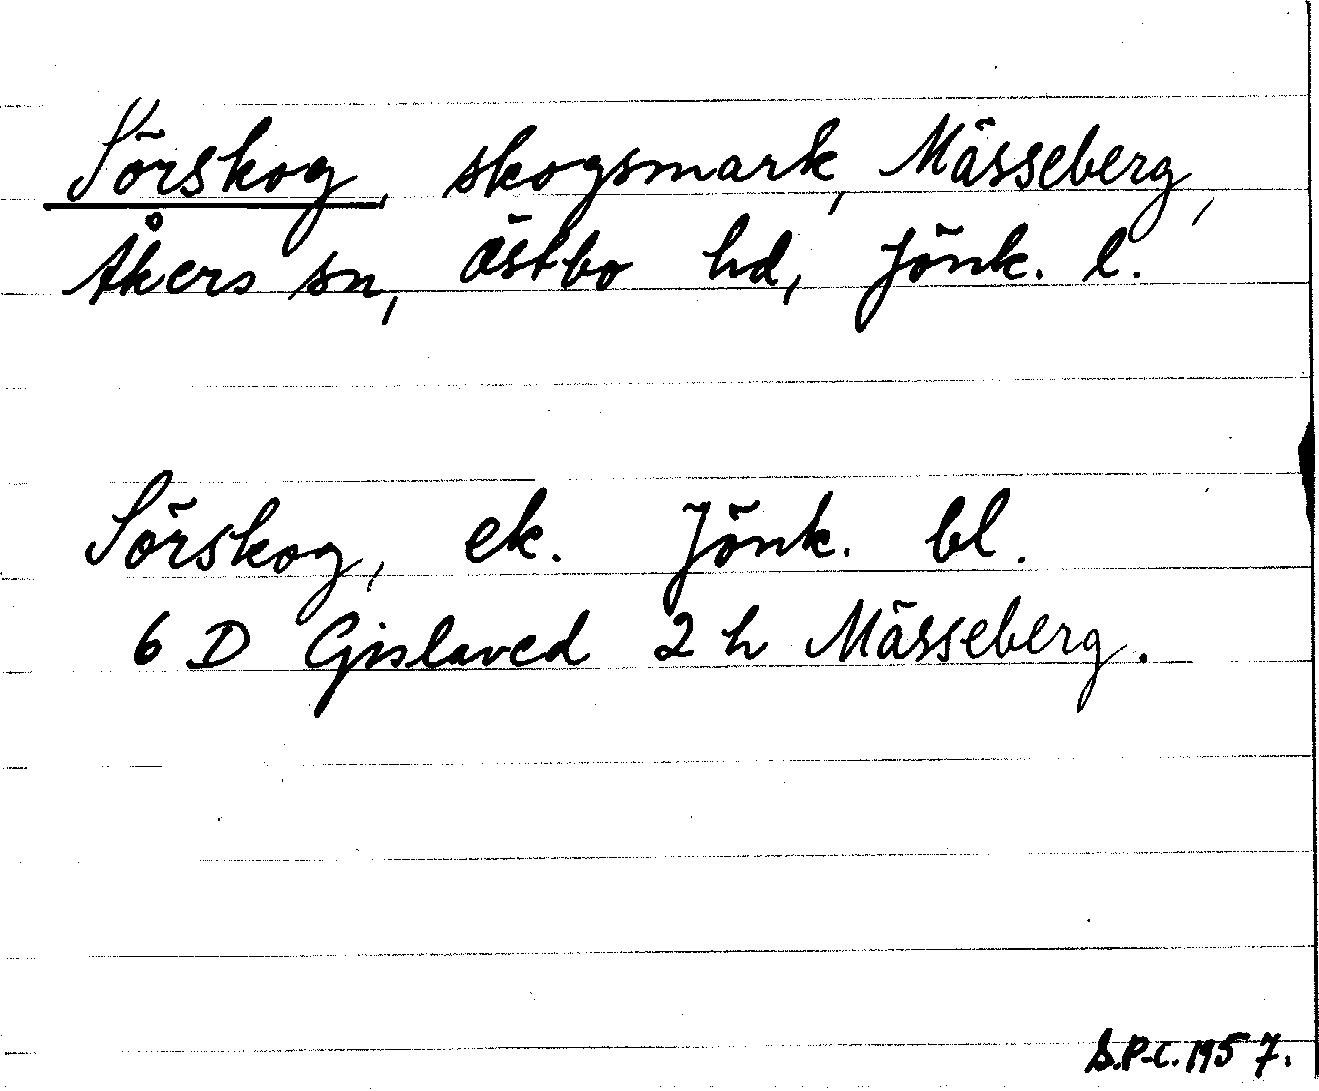 Sörskog, skogsmark, Mässeberg,
Åkers sn, Östbo hd, Jönk. l.
Sörskog, ek. Jönk. bl.
6 D Gislaved 2 h Mässeberg.
S.P-C. 1957.